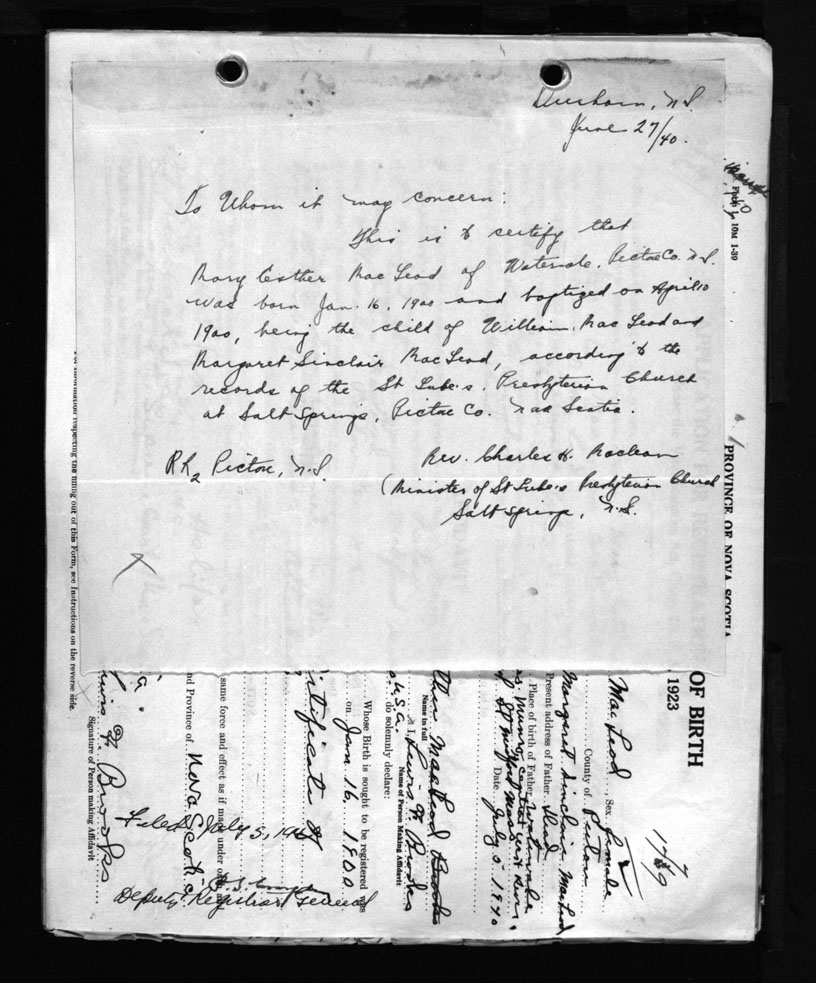 Durham, N.S.
June 27/40.
To Whom it may concern:
This is to certify that
Mary Esther MacLeod of Watervale, Pictou Co. N.S.
was born Jan. 16, 1900 and baptized on April 10
1900, being the child of William MacLeod and
Margaret Sinclair MacLeod, according to the
records of the St Luke's Presbyterian Church
at Salt Springs, Pictou Co. Nova Scotia.
RR2 Pictou, N.S.
Rev. Charles H. Maclean
(Minister of St Luke's Presbyterian Church
Salt Springs, N.S.
10M 1-39
PROVINCE OF NOVA SCOTIA
OF BIRTH
1923
MacLeod Sex female
County of Pictou
Margaret Sinclair MacLeod
Present address of Father Dead
Place of birth of Father Watervale
Date July 5 1940
MacLeod Brooks
Name in full
I, Lewis H. Brooks
Name of Person Making Affidavit
U.S.A. do solemnly declare:
Whose Birth is sought to be registered was
on Jan 16, 1900
same force and effect as if made under
and Province of Nova Scotia
Filed July 5, 1940
Deputy Registrar General
Lewis H. Brooks
Signature of Person making Affidavit
For information respecting the filling out of this Form, see Instructions on the reverse side.